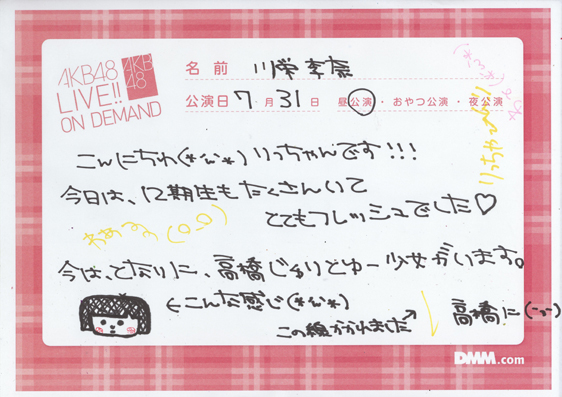 AKB48
LIVE!!
ON DEMAND
AKB
48
名前 川栄李奈
公演日 7月31日 昼公演・おやつ公演・夜公演
こんにちわ(*'ω'*)りっちゃんです!!!
今日は、12期生もたくさんいて
とてもフレッシュでした♡
わぁーい(0_0)
りっちゃん
今は、となりに、高橋じゅりとゆー少女がいます。
←こんな感じ(*'ω'*)
この線かかれました↗
高橋に(ーωー)
DMM.com